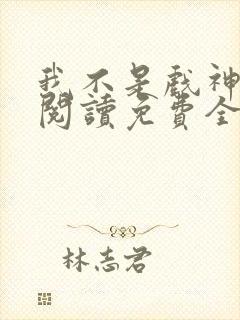 我不是戲神
閱讀免費全
林志君